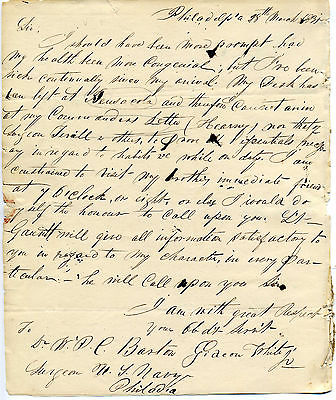 Philadelp'a 28th March
Sir,
I should have been more prompt had
my health been more Congenial; but I've been
sick continually since my arrival. My Desk has
been left at Pensacola and therefore cannot
at my Commanders Letter (Kearny) nor that of
Surgeon & others, to prove essentials
in regard to habits &c while on duty. I am
constrained to visit my brothers immediate
at 7 O'clock or eight, or else I would do
myself the honour to Call upon you. Dr
will give all information satisfactory to
you in regard to my character, in every Par-
ticular - he will Call upon you
I am with great Respect
your obdt Servt
To
Dr W. P. C. Barton Gideon White Jr
Surgeon U. S. Navy
Philada